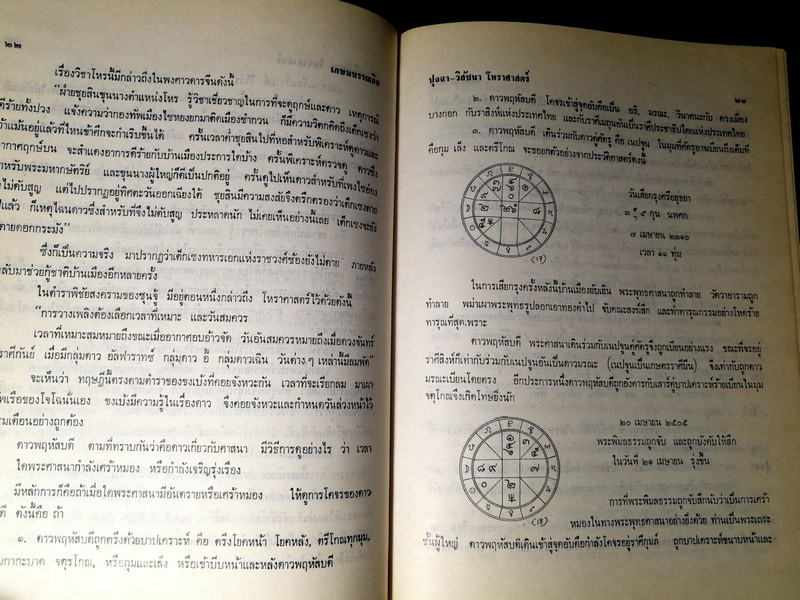 ๒๒
เกษมบรรณกิจ
เรื่องวิชาโหรนี้มีกล่าวถึงในพงศาวดารจีนดังนี้
"ฝ่ายชุยสินขุนนางตำแหน่งโหร รู้วิชาเชี่ยวชาญในการที่จะดูฤกษ์และดาว เหตุการณ์
ดีร้ายทั้งปวง แจ้งความว่ากองทัพเมืองไซหยงยกมาติดเมืองซำกวน ก็มีความวิตกคิดถึงเต็กเชงว่า
ถ้าแม้นอยู่แล้วที่ไหนข้าศึกจะกำเริบขึ้นได้ ครั้นเวลาค่ำชุยสินไปที่หอสำหรับพิเคราะห์ดูดาวและ
อากาศฤกษ์บน จะสำแดงอาการดีร้ายกับบ้านเมืองประการใดบ้าง ครั้นพิเคราะห์ตรวจดู ดาวซึ่ง
สำหรับพระมหากษัตริย์ และขุนนางผู้ใหญ่ก็ดีเป็นปกติอยู่ ครั้นดูไปเห็นดาวสำหรับที่เพงไซอ๋อง
ไม่ดับสูญ แต่ไปปรากฏอยู่ทิศตะวันออกเฉียงใต้ ชุยสินมีความสงสัยจึงตรึกตรองว่าเต็กเชงตาย
ไปแล้ว ก็เหตุไฉนดาวซึ่งสำหรับที่จึงไม่ดับสูญ ประหลาดนัก ไม่เคยเห็นอย่างนี้เลย เต็กเชงจะยัง
ไม่ตายดอกกระมัง"
ซึ่งก็เป็นความจริง มาปรากฏว่าเต็กเชงทหารเอกแห่งราชวงศ์ซ้องยังไม่ตาย ภายหลัง
กลับมาช่วยกู้ชาติบ้านเมืองอีกหลายครั้ง
ในตำราพิชัยสงครามของซุนจู้ มีอยู่ตอนหนึ่งกล่าวถึง โหราศาสตร์ไว้ด้วยดังนี้
"การวางเพลิงต้องเลือกเวลาที่เหมาะ และวันสมควร
เวลาที่เหมาะสมหมายถึงขณะเมื่ออากาศอบอ้าวจัด วันอันสมควรหมายถึงเมื่อดวงจันทร์
ราศีกันย์ เมื่อมีกลุ่มดาว อัลฟาราทซ์ กลุ่มดาว อี้ กลุ่มดาวเฉิน วันต่าง ๆ เหล่านี้มีลมพัด"
จะเห็นว่า ทฤษฎีนี้ตรงตามตำราของขงเบ้งที่คอยจังหวะกัน เวลาที่จะเรียกลม มาเผา
ทัพเรือของโจโฉนั่นเอง ขงเบ้งมีความรู้ในเรื่องดาว จึงคอยจังหวะและกำหนดวันล่วงหน้าไว้
แรมเดือนอย่างถูกต้อง
ดาวพฤหัสบดี ตามที่ทราบกันว่าคือดาวเกี่ยวกับศาสนา มีวิธีการดูอย่างไร ว่า เวลา
ใดพระศาสนากำลังเศร้าหมอง หรือกำลังเจริญรุ่งเรือง
มีหลักการก็คือถ้าเมื่อใดพระศาสนามีอันตรายหรือเศร้าหมอง ให้ดูการโคจรของดาว
ดี ดังนี้คือ ถ้า
๑. ดาวพฤหัสบดีถูกตรึงด้วยบาปเคราะห์ คือ ตรึงโยคหน้า โยคหลัง, ตรีโกณทุกมุม,
มุมกากะบาด จตุรโกณ, หรือกุมและเล็ง หรือเข้าบีบหน้าและหลังดาวพฤหัสบดี
ปุจฉา–วิสัชนา โหราศาสตร์
๒๓
๒. ดาวพฤหัสบดี โคจรเข้าสู่จุดอับคือเป็น อริ, มรณะ, วินาศนะกับ ดวงเมือง
บางกอก กับราสีหังแห่งประเทศไทย และกับราศีเมถุนอันเป็นราศีประชาธิปไตยแห่งประเทศไทย
๓. ดาวพฤหัสบดี เดินร่วมกับดาวคู่ศัตรู คือ เนปจูน ในมุมที่ศัตรูอาจเบียนถึงเต็มที่
คือกุม เล็ง และตรีโกณ จะขอยกตัวอย่างจากประวัติศาสตร์ดังนี้
วันเสียกรุงศรีอยุธยา
๓ ฯ ๕ กุน นพศก
๗ เมษายน ๒๓๑๐
เวลา ๑๑ ทุ่ม
(17)
ในการเสียกรุงครั้งหลังนี้บ้านเมืองยับเยิน พระพุทธศาสนาถูกทำลาย วัดวาอารามถูก
ทำลาย พม่าเผาพระพุทธรูปลอกเอาทองคำไป จับคณะสงฆ์สึก และทำทารุณกรรมอย่างโหดร้าย
ทารุณที่สุด,เพราะ
ดาวพฤหัสบดี พระศาสนาเดินร่วมกับเนปจูนคู่ศัตรูจึงถูกเบียนอย่างแรง ขณะที่จรอยู่
ราศีสิงห์ก็เท่ากับร่วมกับเนปจูนอันเป็นดาวมรณะ (เนปจูนเป็นเกษตรราศีมีน) จึงเท่ากับถูกดาว
มรณะเบียนโดยตรง อีกประการหนึ่งดาวพฤหัสบดีถูกอังคารกับเสาร์คู่บาปเคราะห์ร้ายเบียนในมุม
จตุโกณจึงเกิดโทษยิ่งนัก
๒๐ เมษายน ๒๕๐๕
พระพิมลธรรมถูกจับ และถูกบังคับให้สึก
ในวันที่ ๒๑ เมษายน รุ่งขึ้น
(18)
การที่พระพิมลธรรมถูกจับสึกนับว่าเป็นการเศร้า
หมองในทางพระพุทธศาสนาอย่างยิ่งด้วย ท่านเป็นพระเถระ
ชั้นผู้ใหญ่ ดาวพฤหัสบดีเดินเข้าสู่จุดอับคือกำลังโคจรอยู่ราศีกุมภ์ ถูกบาปเคราะห์ขนาบหน้าและ